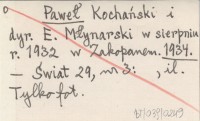 Paweł Kochański i
dyr. E. Młynarski w sierpniu
r. 1932 w Zakopanem. 1934.
— Świat 29, nr 3: , il.
Tylko fot.